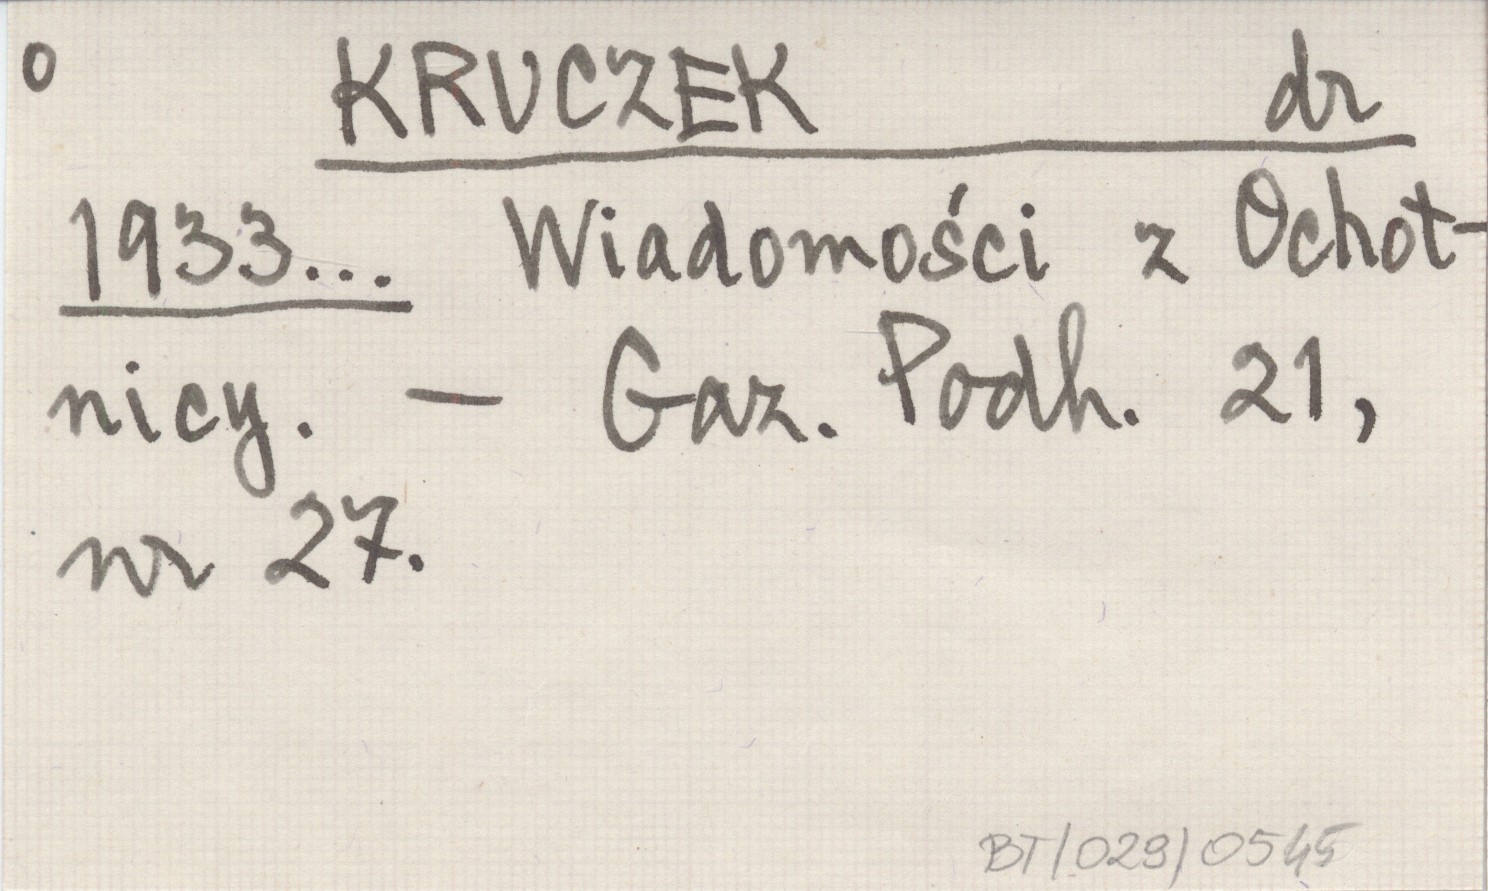 o KRUCZEK dr
1933... Wiadomości z Ochot-
nicy. — Gaz. Podh. 21,
nr 27.
BT/029/0545